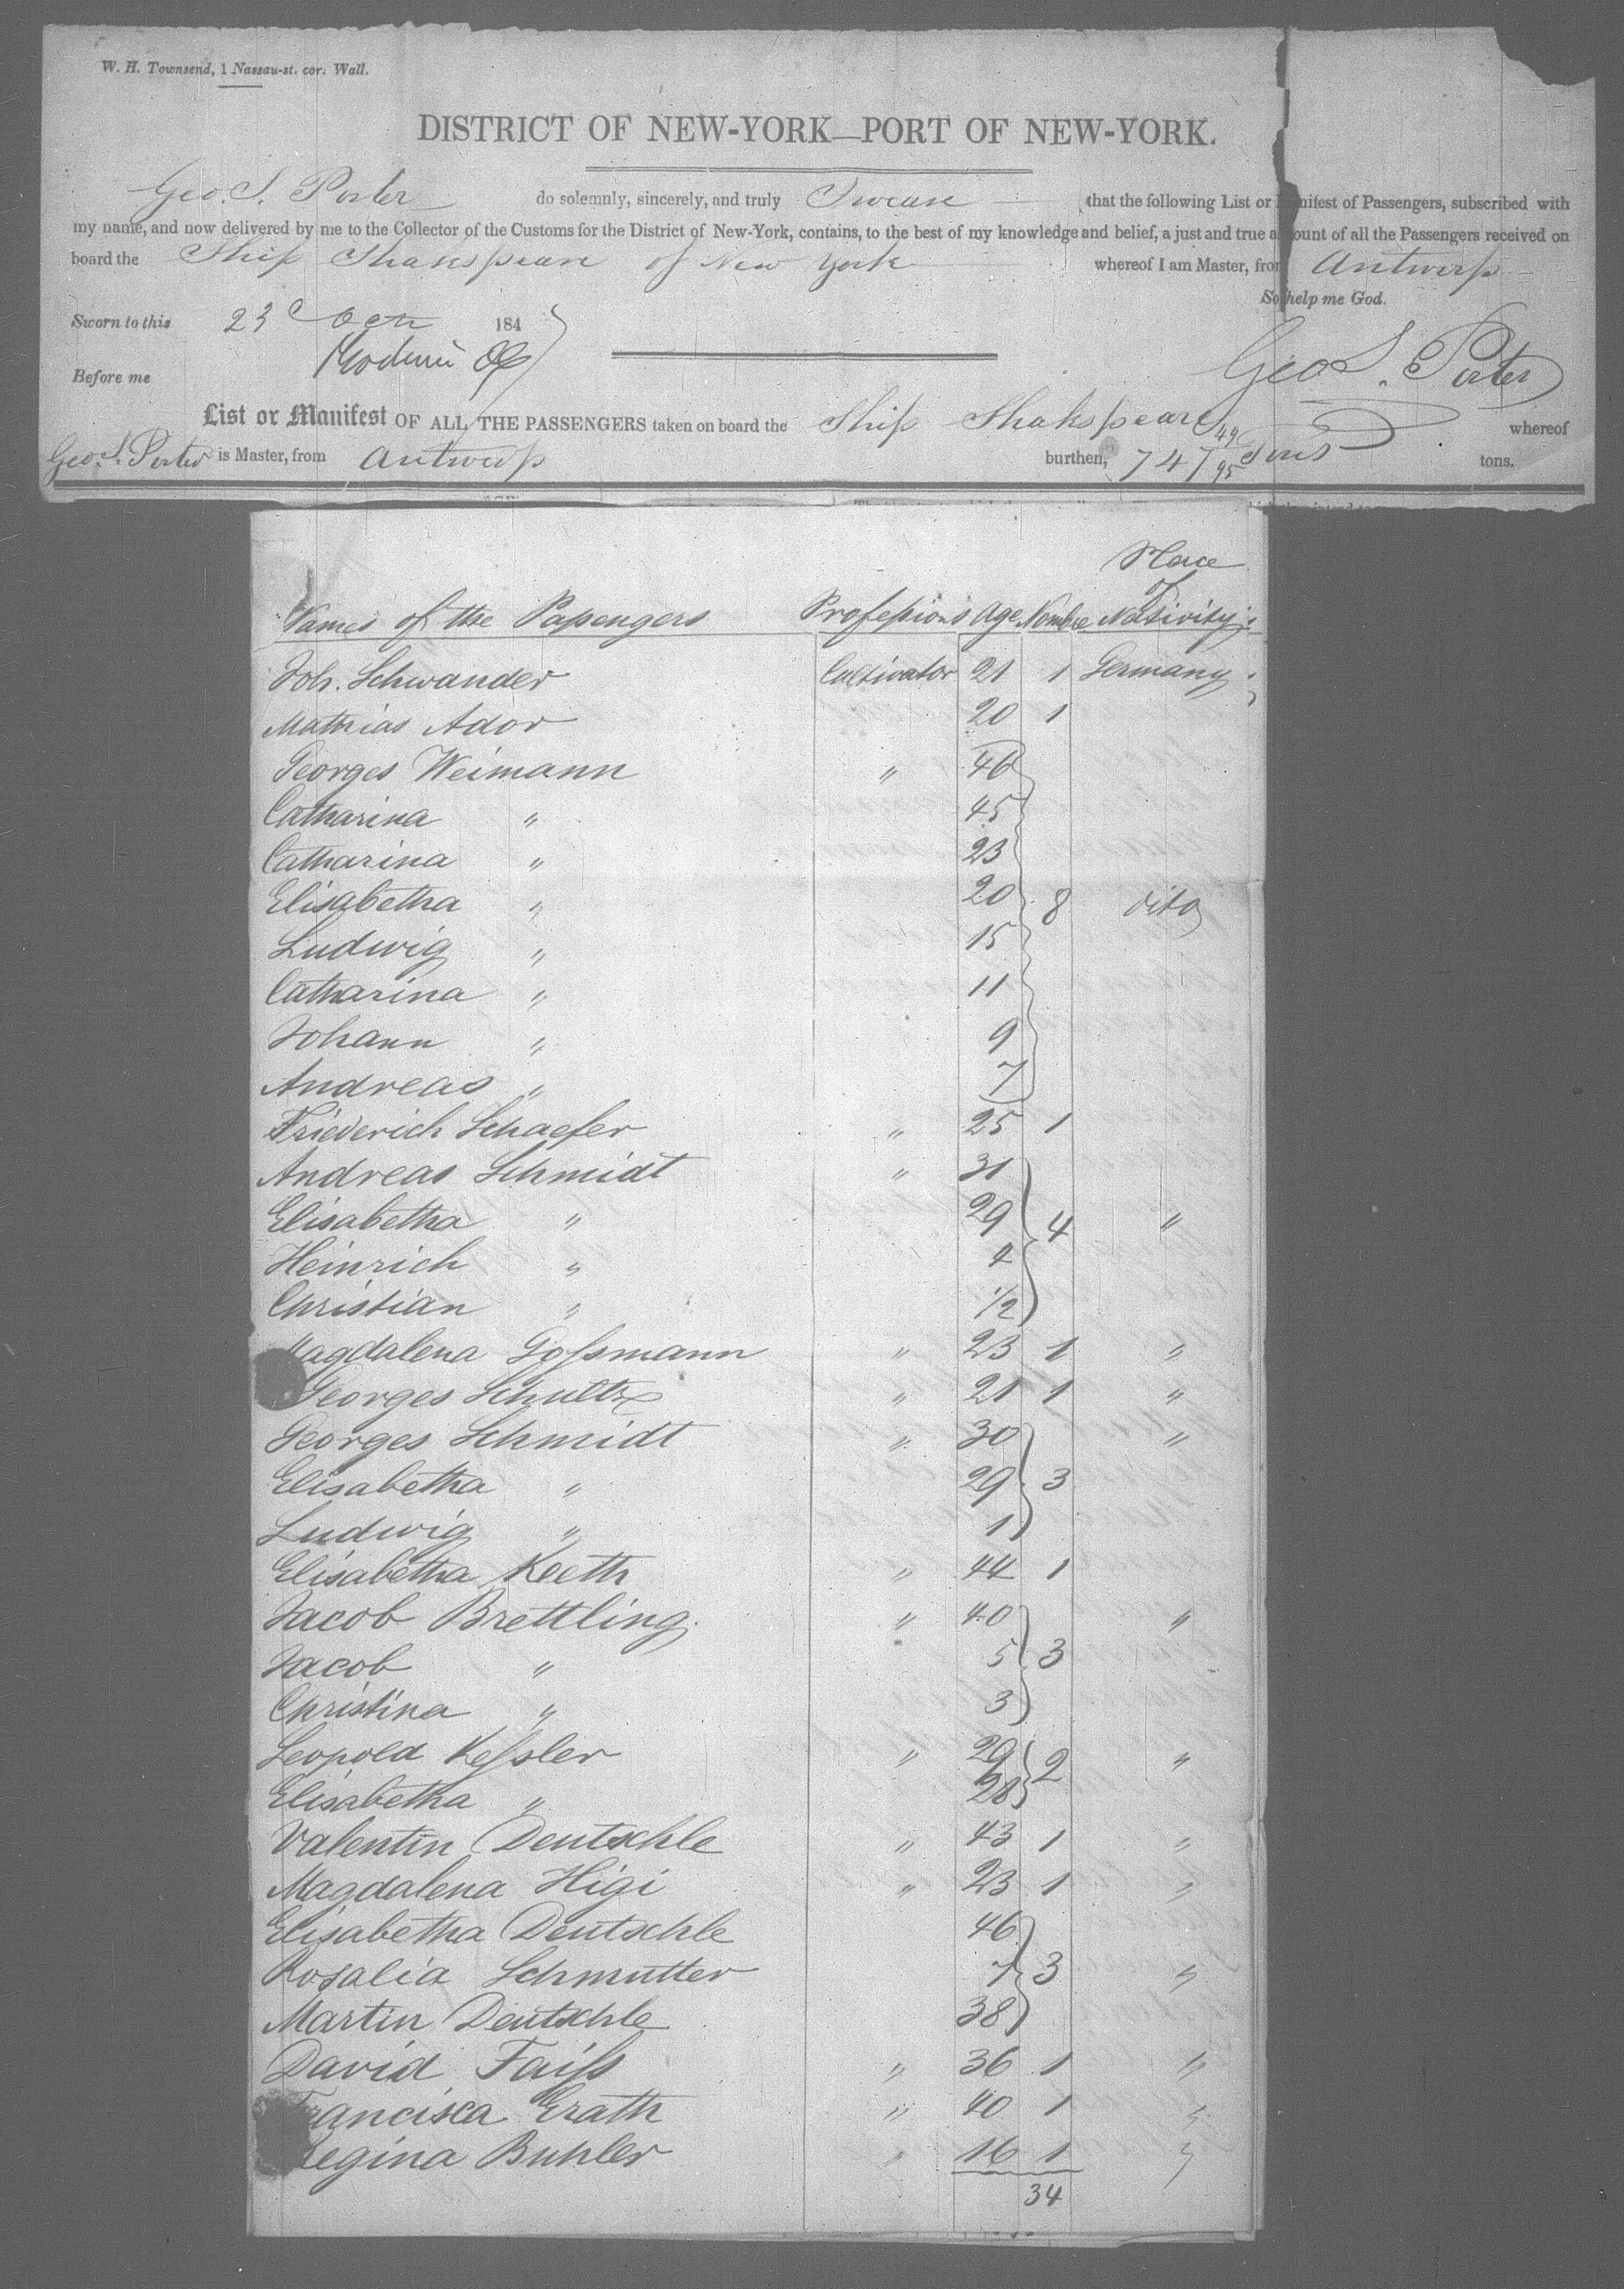 W. H. Townsend, 1 Nassau-st. cor. Wall.
DISTRICT OF NEW-YORK—PORT OF NEW-YORK.
Geo. S. Porter do solemnly, sincerely, and truly Swear that the following List or Manifest of Passengers, subscribed with
my name, and now delivered by me to the Collector of the Customs for the District of New-York, contains, to the best of my knowledge and belief, a just and true account of all the Passengers received on
board the Ship Shakspeare of New York whereof I am Master, from Antwerp
So help me God.
Sworn to this 23 Oct 184
Before me
Geo S. Porter
List or Manifest OF ALL THE PASSENGERS taken on board the Ship Shakspeare whereof
Geo. S. Porter is Master, from Antwerp burthen, 747 49/95 Tons tons.
Place
of
Names of the Paſsengers Profeſsions Age Nombre Nativity
Joh. Schwander Cultivator 21 1 Germany
Mathias Ador 20 1
Georges Weimann " 46
Catharina " 45
Catharina " 23
Elisabetha " 20 8 dito
Ludwig " 15
Catharina " 11
Johann " 9
Andreas " 7
Friederich Schaefer " 25 1
Andreas Schmidt " 31
Elisabetha " 29 4 "
Heinrich " 4
Christian " 1/2
Magdalena Goſsmann " 23 1 "
Georges Schultz " 21 1 "
Georges Schmidt " 30 "
Elisabetha " 29 3
Ludwig " 1
Elisabetha Keeth " 44 1
Jacob Brettling " 40 "
Jacob " 5 3
Christina " 3
Leopold Keſsler " 29 2 "
Elisabetha " 28
Valentin Deutschle " 43 1 "
Magdalena Higi " 23 1 "
Elisabetha Deutschle 46
Rosalia Schmutter 7 3 "
Martin Deutschle 38
David Faiſs " 36 1 "
Francisca Erath " 40 1 "
Regina Buhler " 16 1 "
34